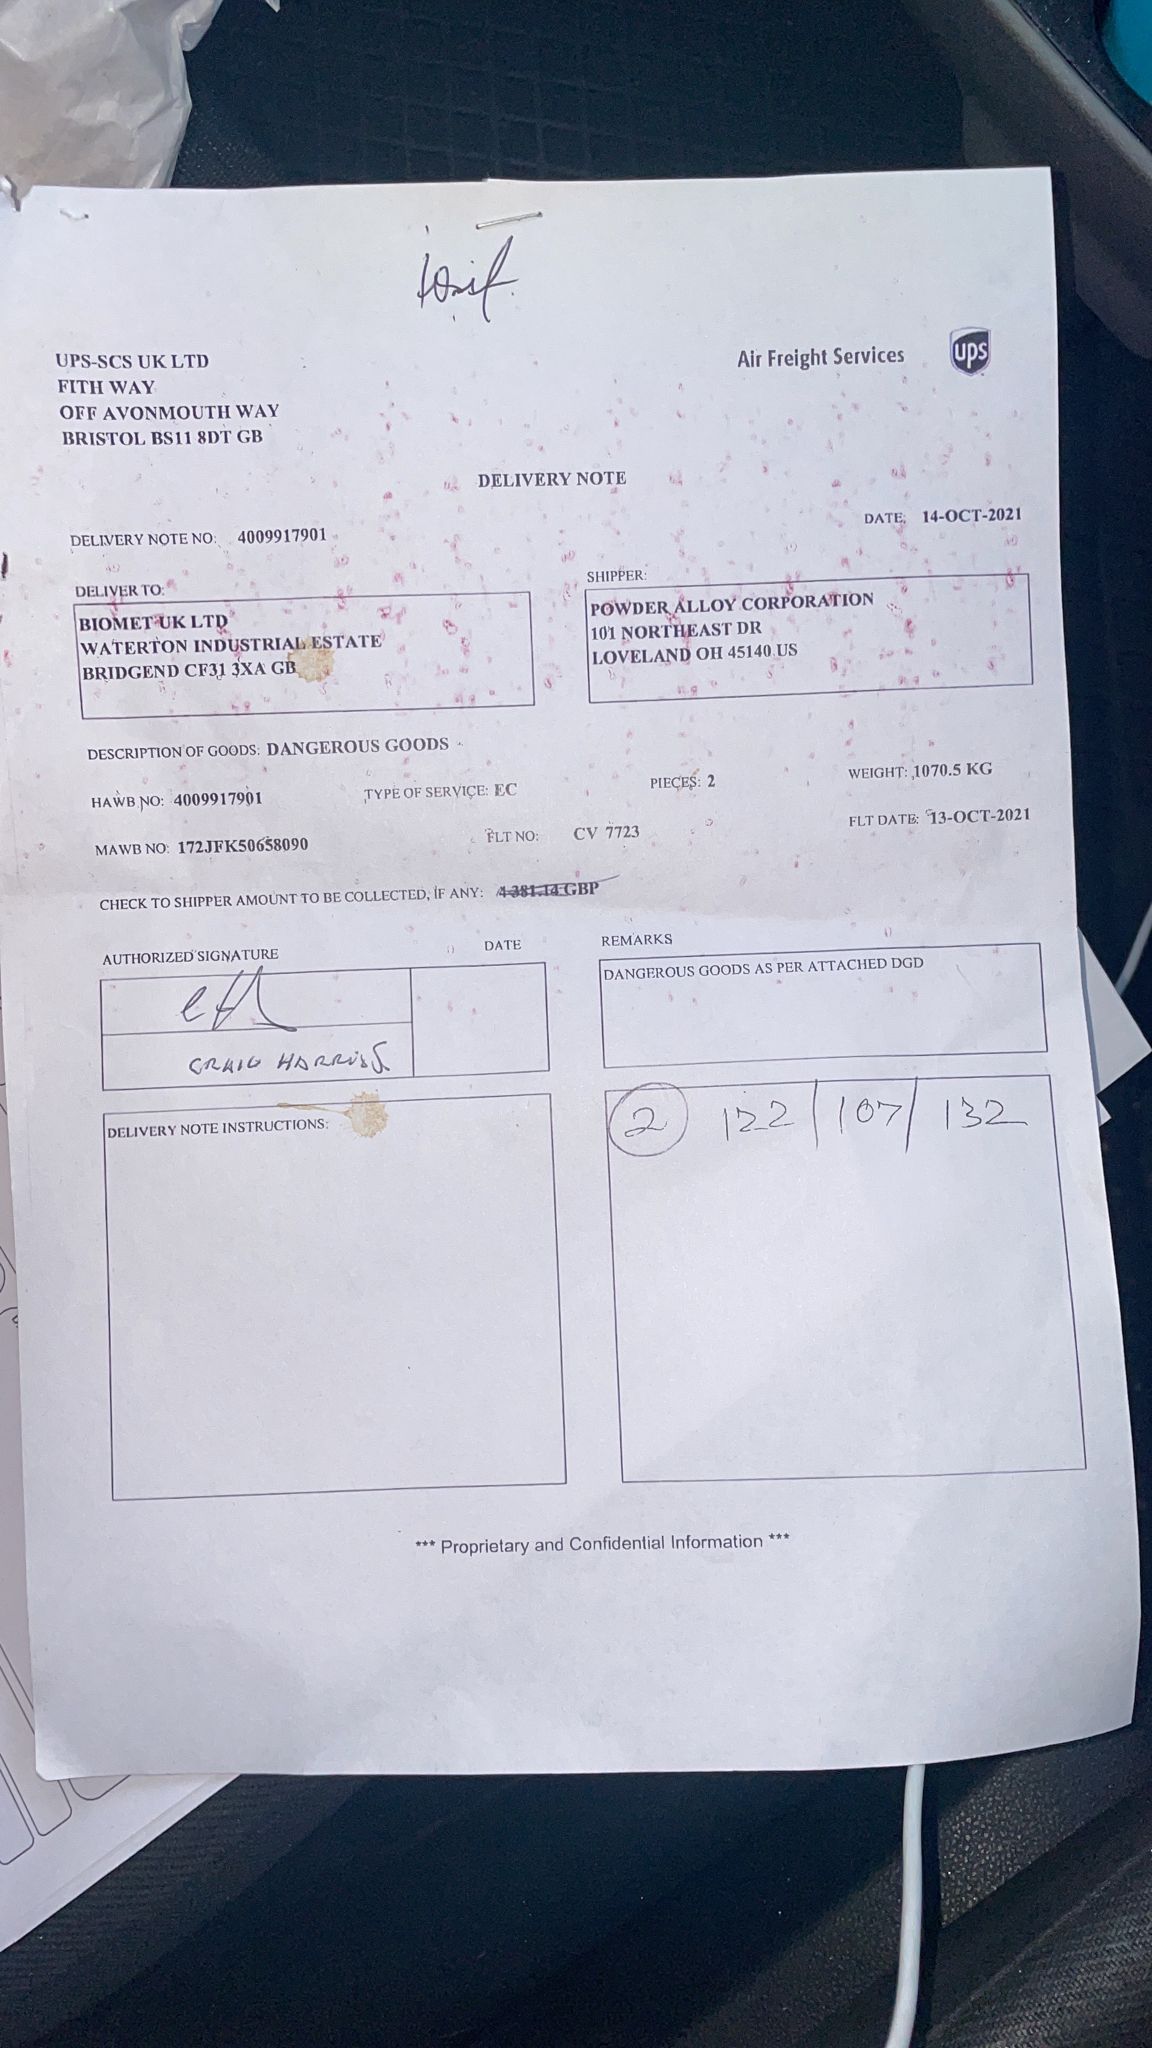 UPS-SCS UK LTD
FITH WAY
OFF AVONMOUTH WAY
BRISTOL BS11 8DT GB
Air Freight Services
ups
DELIVERY NOTE
DELIVERY NOTE NO: 4009917901
DATE: 14-OCT-2021
DELIVER TO:
BIOMET UK LTD
WATERTON INDUSTRIAL ESTATE
BRIDGEND CF31 3XA GB
SHIPPER:
POWDER ALLOY CORPORATION
101 NORTHEAST DR
LOVELAND OH 45140 US
DESCRIPTION OF GOODS: DANGEROUS GOODS
HAWB NO: 4009917901 TYPE OF SERVICE: EC PIECES: 2 WEIGHT: 1070.5 KG
MAWB NO: 172JFK50658090 FLT NO: CV 7723 FLT DATE: 13-OCT-2021
CHECK TO SHIPPER AMOUNT TO BE COLLECTED, IF ANY: 4 381.14 GBP
AUTHORIZED SIGNATURE DATE
CRAIG HARRISS
REMARKS
DANGEROUS GOODS AS PER ATTACHED DGD
DELIVERY NOTE INSTRUCTIONS:
2 122/107/132
*** Proprietary and Confidential Information ***